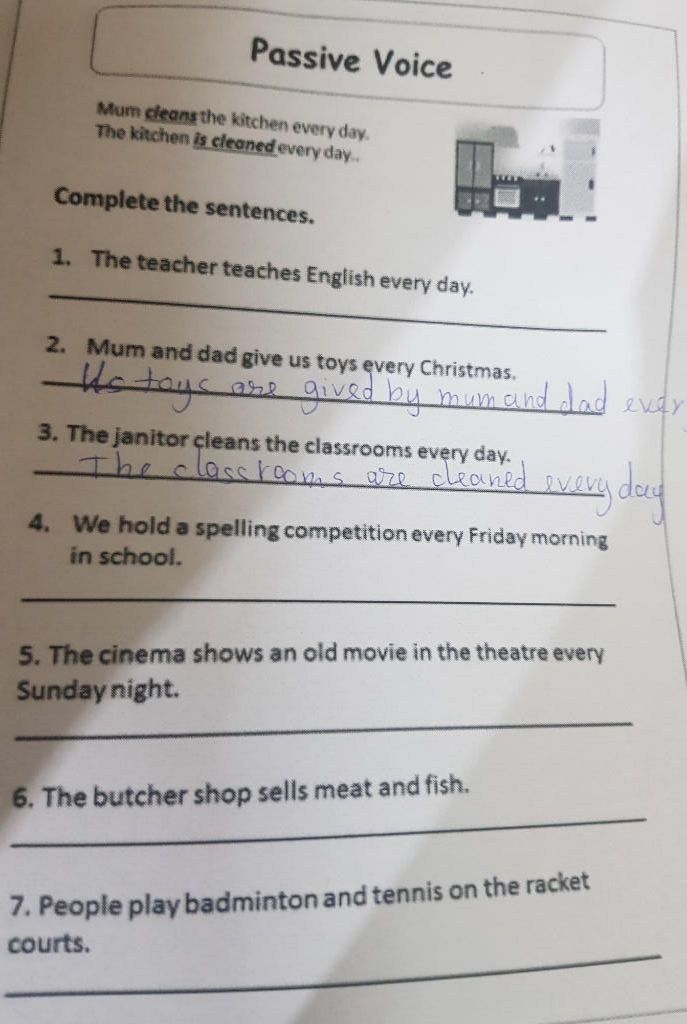 Passive Voice
Mum cleans the kitchen every day.
The kitchen is cleaned every day..
Complete the sentences.
1. The teacher teaches English every day.
2. Mum and dad give us toys every Christmas.
Us toys are gived by mum and dad every
3. The janitor cleans the classrooms every day.
The classrooms are cleaned every day
4. We hold a spelling competition every Friday morning
in school.
5. The cinema shows an old movie in the theatre every
Sunday night.
6. The butcher shop sells meat and fish.
7. People play badminton and tennis on the racket
courts.